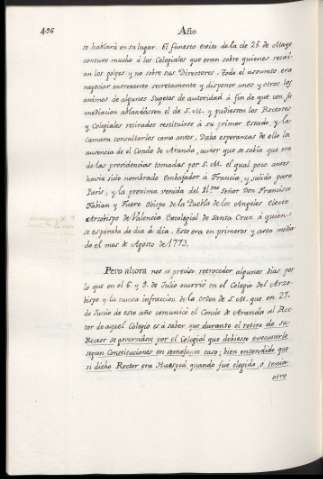 406 Año
se hablará en su lugar. El funesto exito de la de 25 de Mayo
contuvo mucho à los Colegiales que eran sobre quienes recai-
an los golpes y no sobre sus Directores. Todo el assunto era
negociar nuevamente secretamente y disponer unos y otros los
animos de algunos Sugetos de autoridad à fin de que con su
mediacion ablandassen el de S.M. y pudiessen los Rectores
y Colegiales retirados restituirse à su primer estado, y la
Camara consultarlos como antes. Daba esperanzas de ello la
ausencia del Conde de Aranda, autor que se sabia que era
de las providencias tomadas por S.M. el qual poco antes
havia sido nombrado Embajador à Francia, y salido para
Paris, y la proxima venida del Il.mo Señor Don Francisco
Fabian y Fuero Obispo de la Puebla de los Angeles electo
Arzobispo de Valencia Excolegial de Santa Cruz à quien
se esperaba de dia à dia. Esto era en primeros y aun media-
do el mes de Agosto de 1773.
Pero ahora nos es preciso retroceder algunos dias por
lo que en el 6 y 8 de Julio ocurrió en el Colegio del Arzo-
bispo y la nueva infraccion de la orden de S.M. que en 27.
de Junio de este año comunicó el Conde de Aranda al Rec-
tor de aquel Colegio es à saber que durante el retiro de su
Rector se governassen por el Colegial que debiesse executarlo
segun Constituciones en semejante caso; bien entendido que
si dicho Rector era Huesped quando fue elegido, o tenia
otro